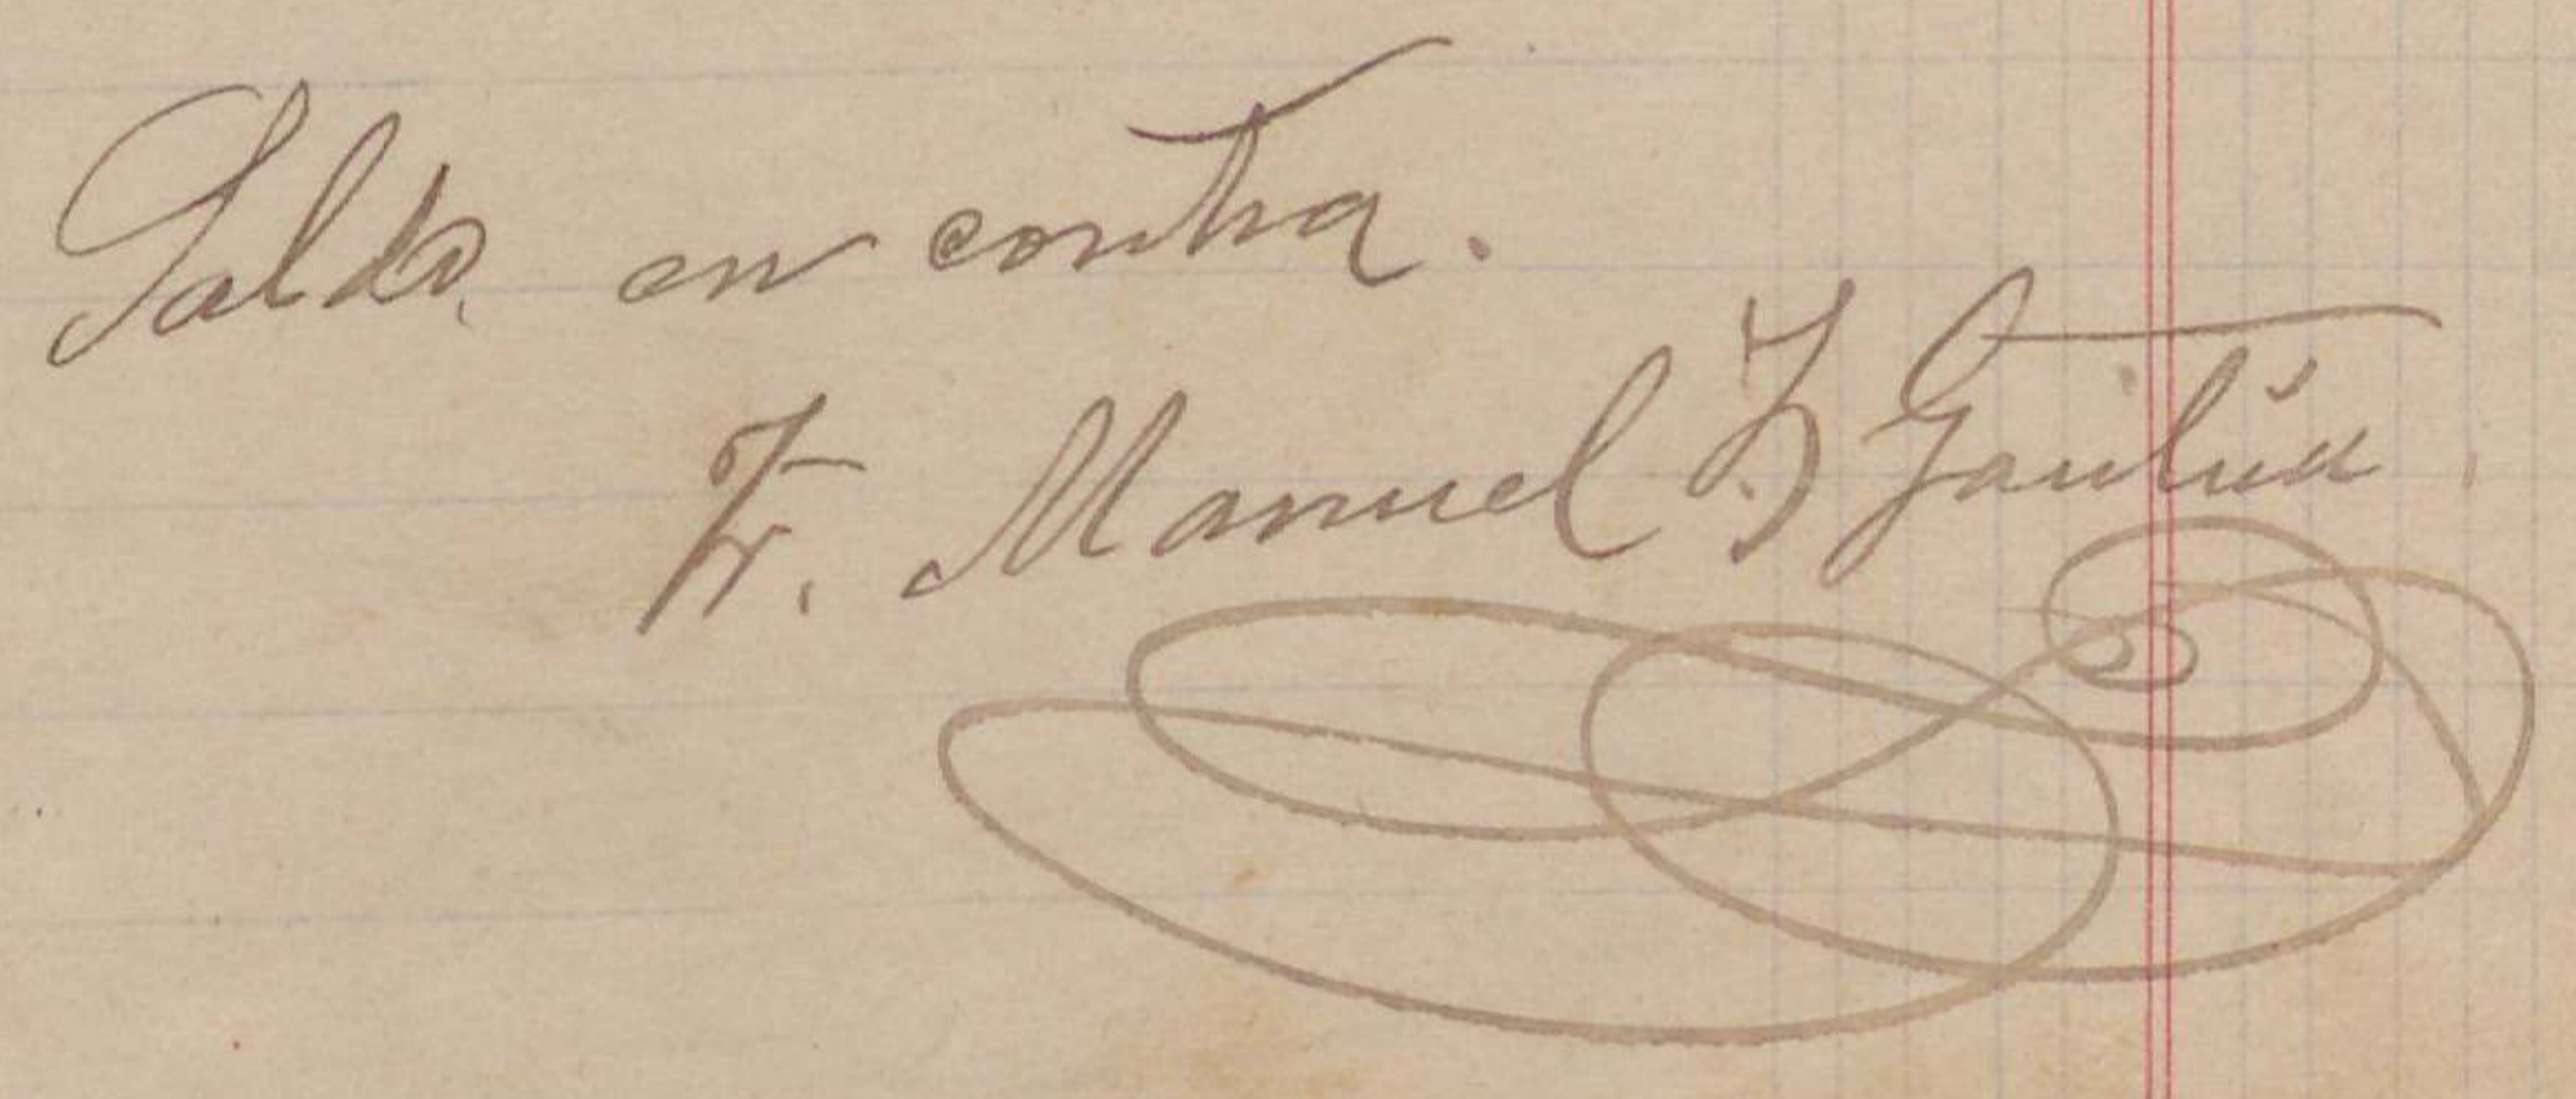 Saldo en contra.
Fr. Manuel F Gaitán